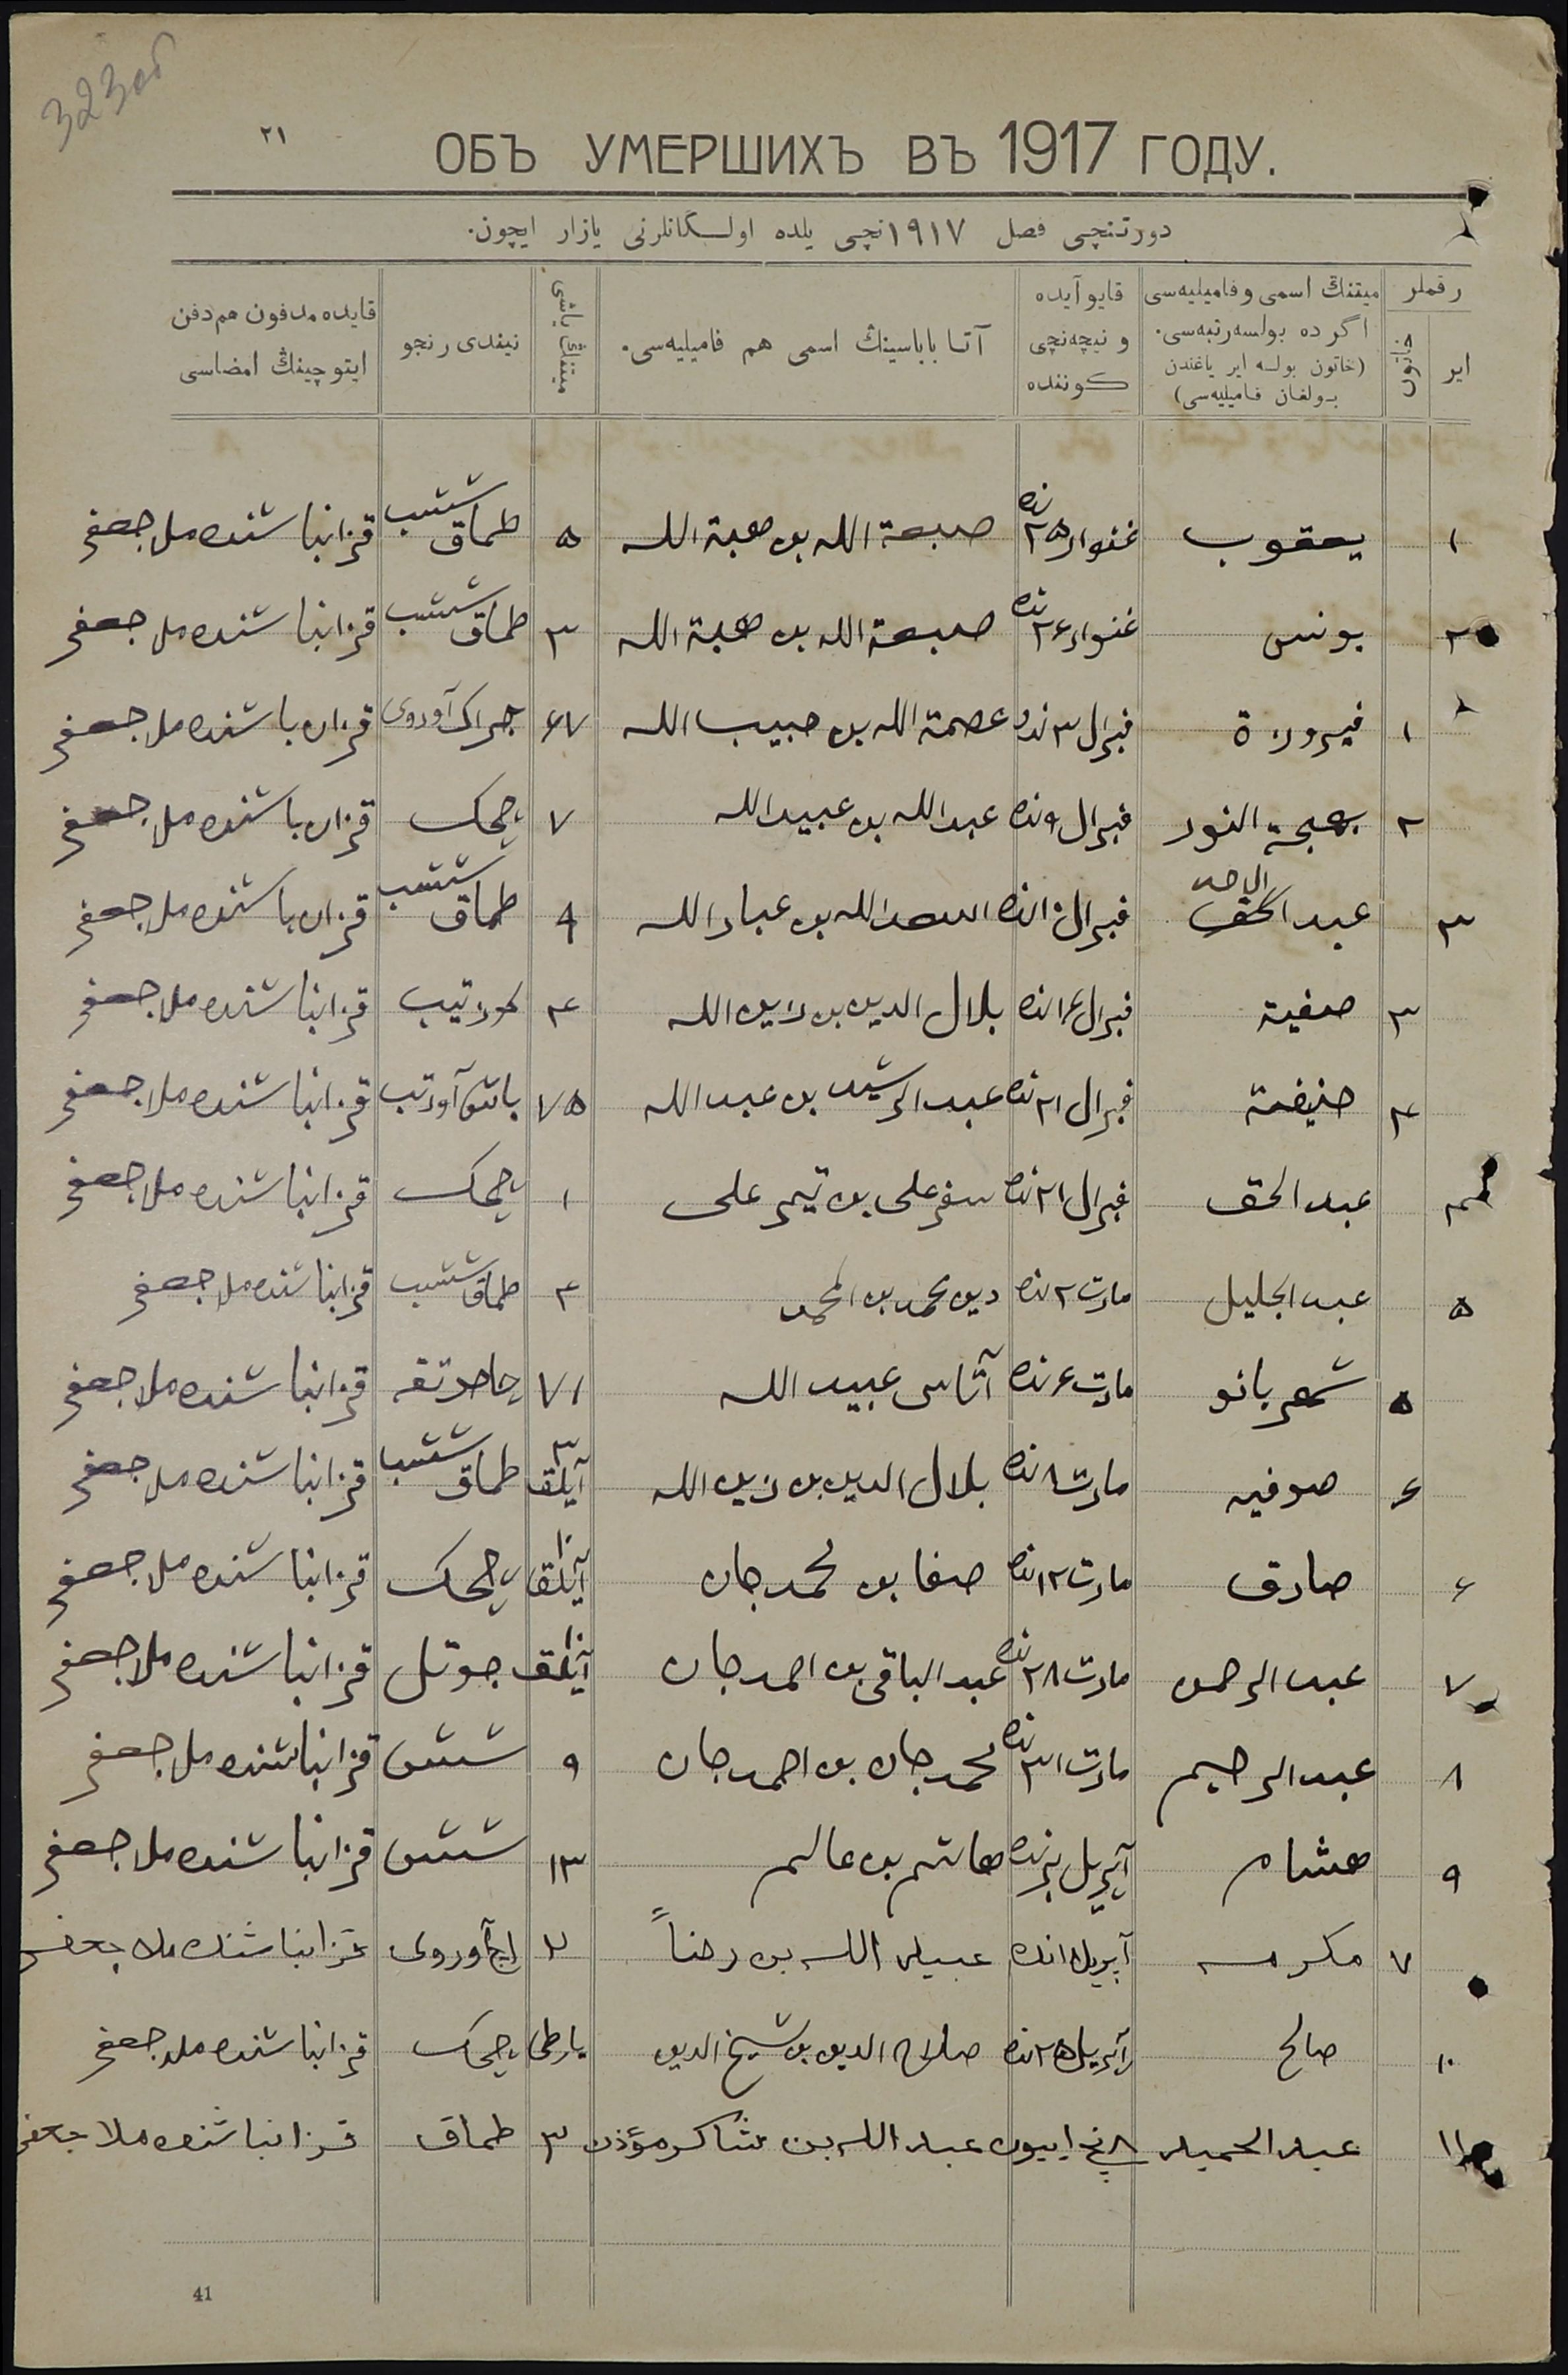 323об
٢١
ОБЪ УМЕРШИХЪ ВЪ 1917 ГОДУ.
دورتنچی فصل ١٩١٧نچی یلده اولـگانلرنی یازار ایچون.
رقملر
ایر
خاتون
میتنڭ اسمی وفامیلیه‌سی اگر ده بولسه رتبه‌سی. (خاتون بولسه ایر یاغندن بولغان فامیلیه‌سی)
قایو آیده و نیچه‌نچی کوننده
آتا باباسینڭ اسمی هم فامیلیه‌سی.
میتنڭ یاشی.
نیندی رنجو
قایده مدفون هم دفن ایتوچینڭ امضاسی
١ یعقوب غنوار ٢٥ نده صبغة الله بن هبة الله ٥ طماق قزانباشنده ملا جعفر
٢ یونس غنوار ٢۶ نده صبغة الله بن هبة الله ٣ طماق قزانباشنده ملا جعفر
١ فیروزة فبرال ٣ نده عصمة الله بن حبیب الله ۶٧ قزان باشنده ملا جعفر
٢ بهجة النور فبرال ٩ نده عبدالله بن عبیدالله ٧ چچک قزان باشنده ملا جعفر
٣ عبد الاحد فبرال ١٠ نده اسعدالله بن عبادالله طماق قزان باشنده ملا جعفر
٣ صفیة فبرال ١۶ نده بلال الدین بن زین الله ۴ قزانباشنده ملا جعفر
۴ حنیفة فبرال ٢١ نده عبد الرشید بن عبد الله ٧٥ باش آورتب قزانباشنده ملا جعفر
۴ عبد الحق فبرال ٢١ نده سفرعلی بن تیمرعلی ١ چچک قزانباشنده ملا جعفر
٥ عبد الجلیل مارت ٢ نده دین محمد بن طماق قزانباشنده ملا جعفر
٥ شهربانو مارت ۶ نده آتاسی عبید الله ٧١ قزانباشنده ملا جعفر
۶ صوفیه مارت ٨ نده بلال الدین بن زین الله ٣ آیلق طماق قزانباشنده ملا جعفر
۶ صادق مارت ١٢ نده صفا بن محمدجان ١٠ آیلق چچک قزانباشنده ملا جعفر
٧ عبد الرحمن مارت ٢٨ نده عبد الباقی بن احمدجان ١٠ آیلق یوتل قزانباشنده ملا جعفر
٨ عبد الرحیم مارت ٣١ نده محمدجان بن احمدجان ٩ شش قزانباشنده ملا جعفر
٩ هشام آپریل نده هاشم بن عالم ١٣ شش قزانباشنده ملا جعفر
٧ مکرمه آپریل ١٥ نده عبید الله بن رضاً ٢ اچ آوروی قزانباشنده ملا جعفر
١٠ صالح آپریل ٢٥ نده صلاح الدین بن شیخ الدین چچک قزانباشنده ملا جعفر
١١ عبد الحمید ٨ نچی ایيون عبد الله بن شاکر مؤذن ٣ طماق قزانباشنده ملا جعفر
41